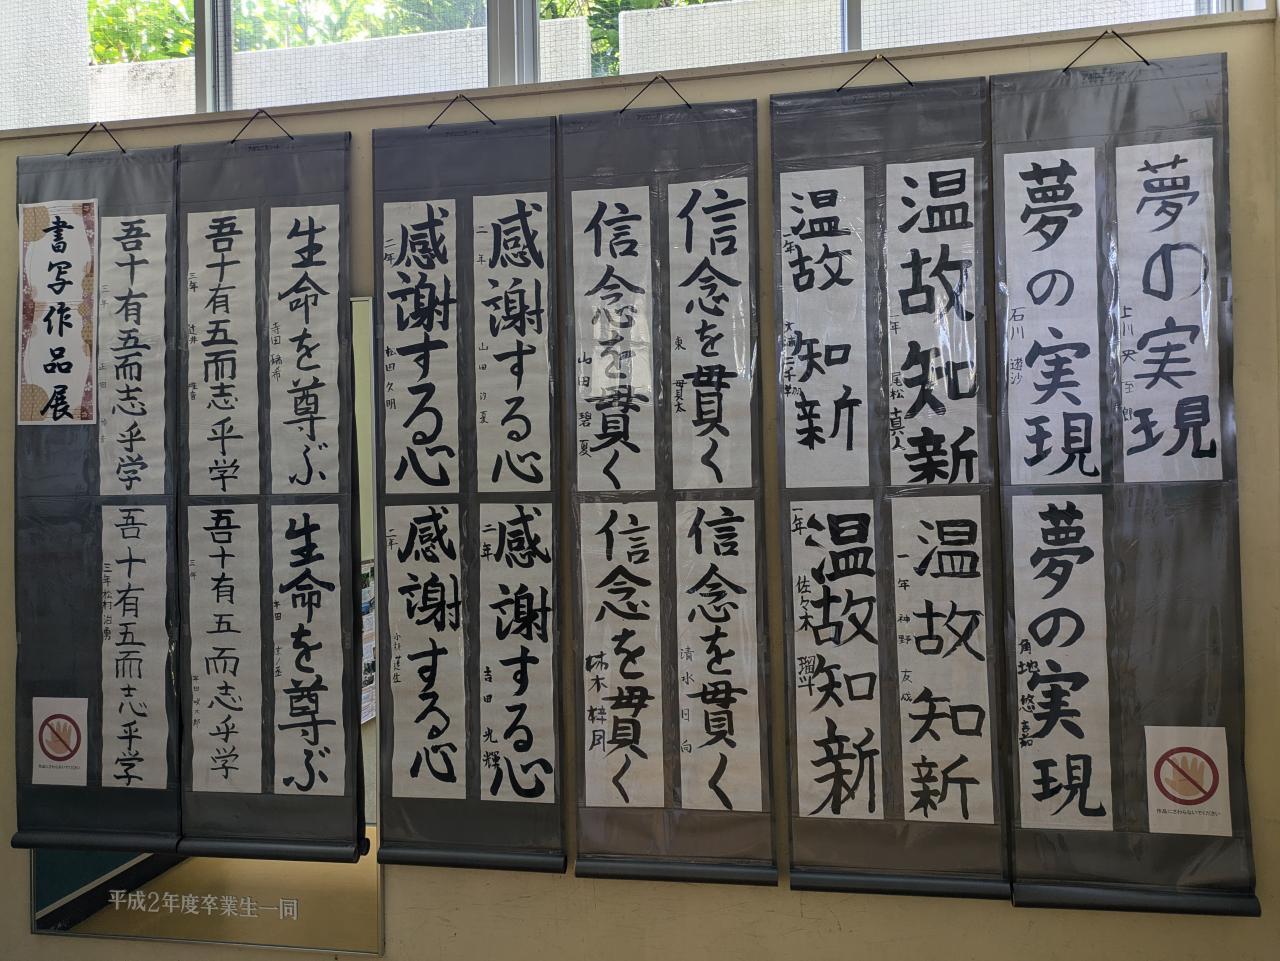 書写作品展
吾十有五而志乎学
三年
吾十有五而志乎学
三年 松村治勇
吾十有五而志乎学
三年
吾十有五而志乎学
三年
生命を尊ぶ
寺田
生命を尊ぶ
感謝する心
二年 松田久明
感謝する心
二年 山田汐夏
感謝する心
二年
感謝する心
二年 吉田光輝
信念を貫く
山田碧夏
信念を貫く
東 貫太
信念を貫く
梓月
信念を貫く
清水日向
温故知新
一年
温故知新
一年 尾松真人
温故知新
一年 佐々木瑠斗
温故知新
一年 神野友成
夢の実現
石川
夢の実現
上川
夢の実現
角地悠
作品にさわらないでください
作品にさわらないでください
平成2年度卒業生一同